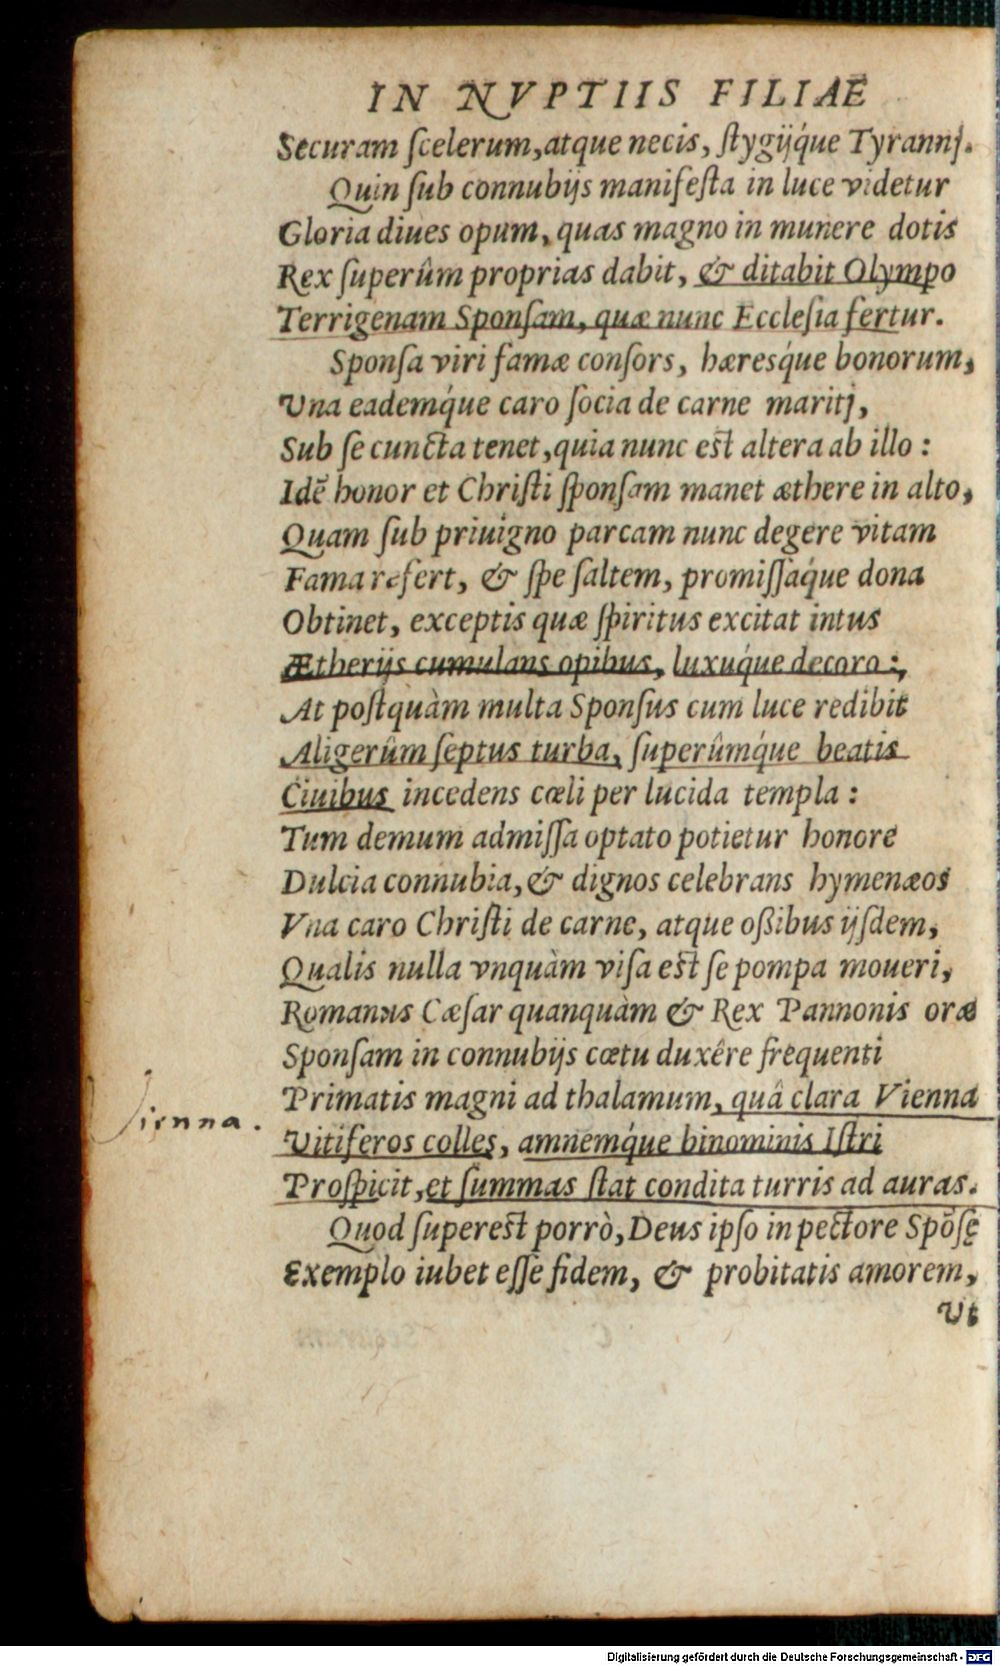 IN NVPTIIS FILIAE
Securam ſcelerum, atque necis, ſtygijq́ue Tyrannj.
Quin ſub connubijs manifeſta in luce videtur
Gloria diues opum, quas magno in munere dotis
Rex ſuperûm proprias dabit, & ditabit Olympo
Terrigenam Sponſam, quæ nunc Eccleſia fertur.
Sponſa viri famæ conſors, hæresq́ue bonorum,
Vna eademq́ue caro ſocia de carne maritj,
Sub ſe cuncta tenet, quia nunc eſt altera ab illo:
Idẽ honor et Chriſti ſponſam manet æthere in alto,
Quam ſub priuigno parcam nunc degere vitam
Fama refert, & ſpe ſaltem, promiſſaq́ue dona
Obtinet, exceptis quæ ſpiritus excitat intus
Ætherijs cumulans opibus, luxuq́ue decoro:,
At poſtquàm multa Sponſus cum luce redibit
Aligerûm ſeptus turba, ſuperûmq́ue beatis
Ciuibus incedens cœli per lucida templa:
Tum demum admiſſa optato potietur honore
Dulcia connubia, & dignos celebrans hymenæos
Vna caro Chriſti de carne, atque oßibus ijſdem,
Qualis nulla vnquàm viſa eſt ſe pompa moueri,
Romanus Cæſar quanquàm & Rex Pannonis oræ
Sponſam in connubijs cœtu duxêre frequenti
Primatis magni ad thalamum, quâ clara Vienna
Vienna.
Vitiferos colles, amnemq́ue binominis Iſtri
Proſpicit, et ſummas ſtat condita turris ad auras.
Quod ſupereſt porrò, Deus ipſo in pectore Spõſę
Exemplo iubet eſſe fidem, & probitatis amorem,
Vt
Digitalisierung gefördert durch die Deutsche Forschungsgemeinschaft - DFG